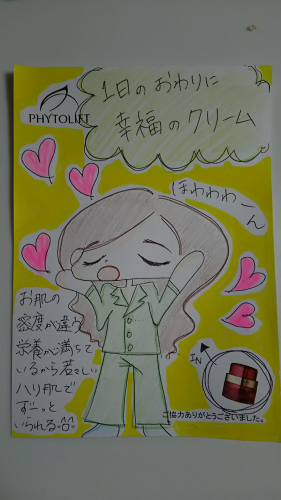 PHYTOLIFT
1日のおわりに
幸福のクリーム
ほわわわ〜ん
お肌の
密度が違う
栄養が満ちて
いるから若々しい
ハリ肌で
ずーっと
いられる。
IN
ご協力ありがとうございました。